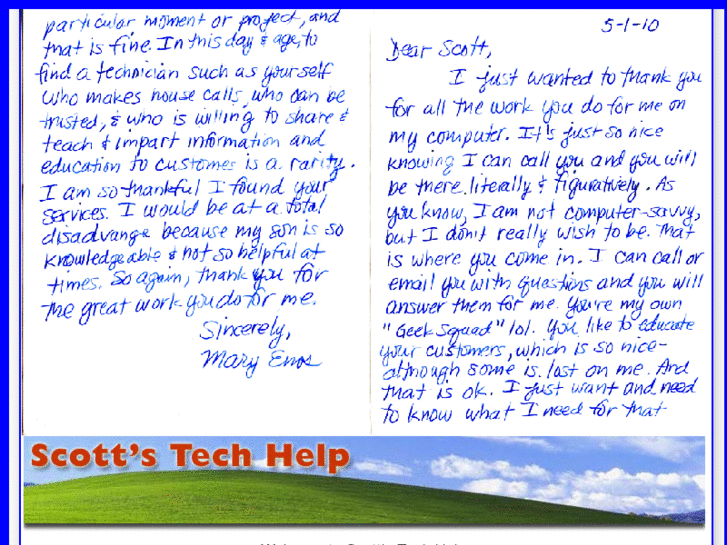 particular moment or project, and
that is fine. In this day & age, to
find a technician such as yourself
who makes house calls, who can be
trusted, & who is willing to share &
teach & impart information and
education to customes is a rarity.
I am so thankful I found your
services. I would be at a total
disadvange because my son is so
knowledgeable & not so helpful at
times. So again, thank you for
the great work you do for me.
Sincerely,
Mary Enos
5-1-10
Dear Scott,
I just wanted to thank you
for all the work you do for me on
my computer. It's just so nice
knowing I can call you and you will
be there literally & figuratively. As
you know, I am not computer-savvy,
but I don't really wish to be. That
is where you come in. I can call or
email you with questions and you will
answer them for me. You're my own
"Geek Squad" lol. You like to educate
your customers, which is so nice-
although some is lost on me. And
that is ok. I just want and need
to know what I need for that
Scott's Tech Help